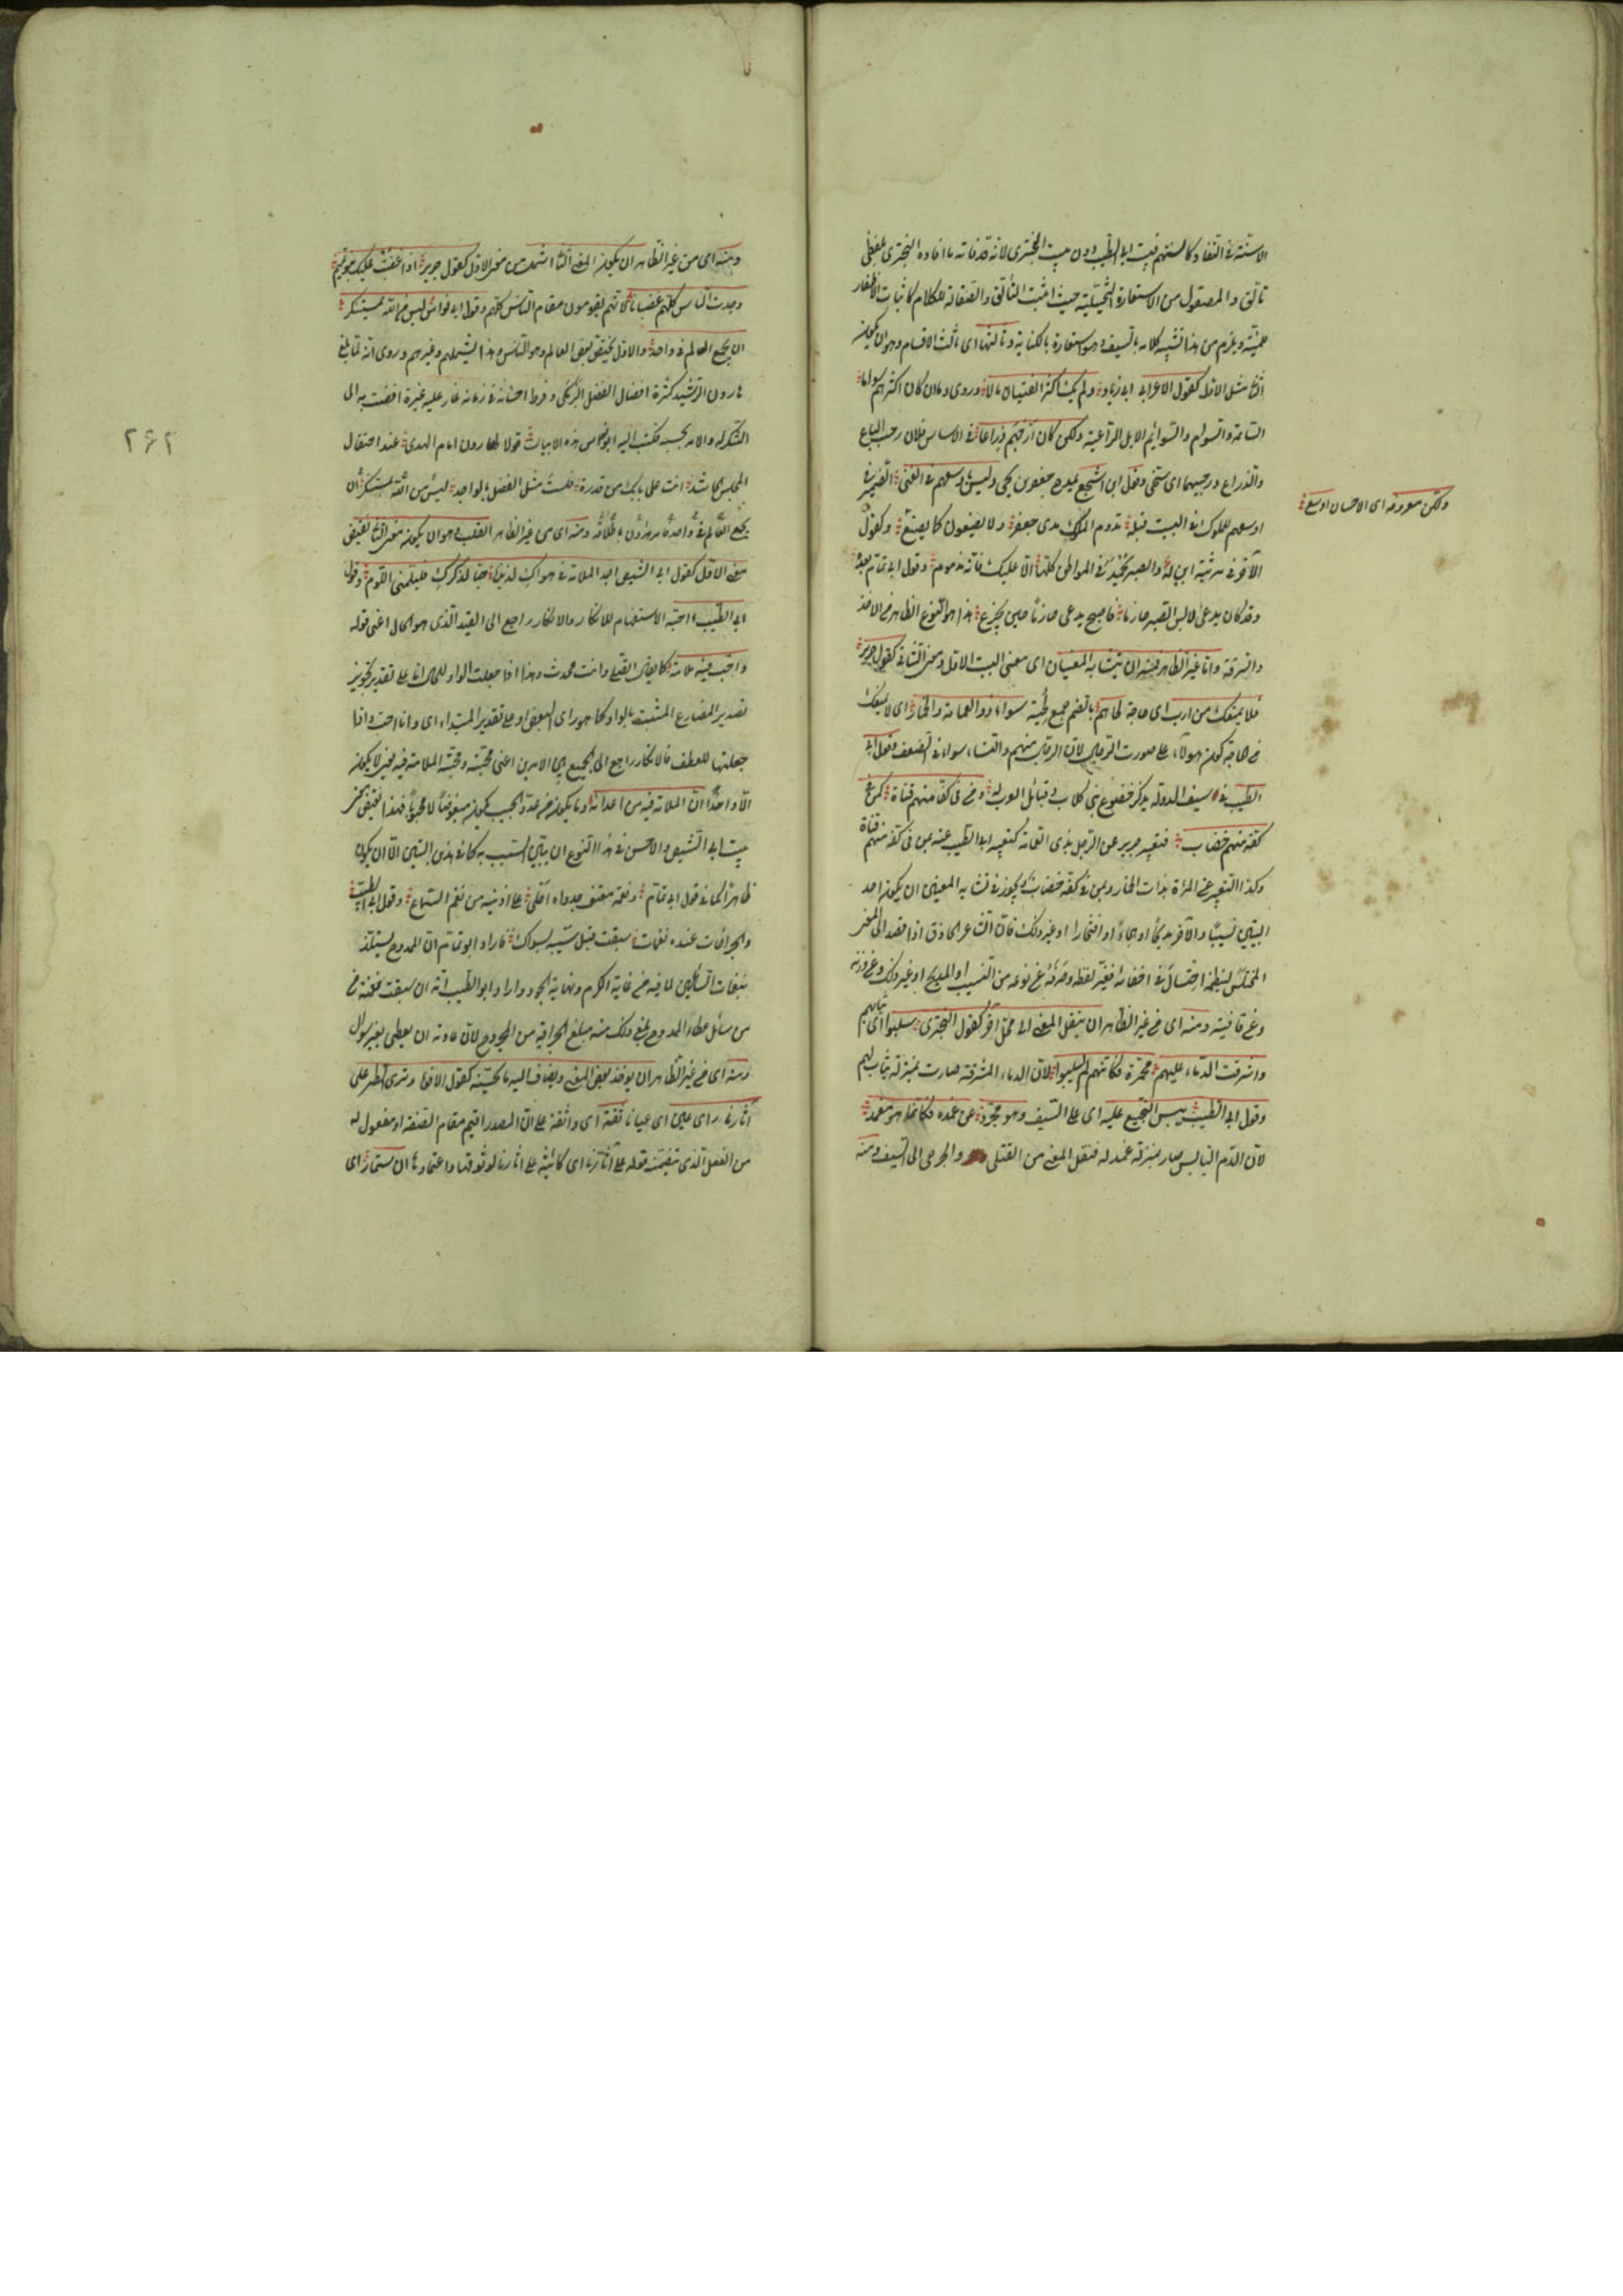 الاسنة في النفاذ كالسنتهم فبيت ابي الطيب دون بيت البحتري لانه قد فاته ما افاده البحتري بلفظي
تألق والمصقول من الاستعارة التخييلية حيث اثبت التألق والصقالة للكلام كاثبات الاظفار
للمنية ويلزم من هذا تشبيه كلامه بالسيف وهو استعارة بالكناية وثالثها اي ثالث الاقسام وهو ان يكون
الثاني مثل الاول كقول الاعرابي ابي زياد ولم يك اكثر الفتيان مالا وروى وما ان كان اكثرهم سواما
السائمة والسوام والسوائم الابل الراعية ولكن كان ارحبهم ذراعا في الاساس فلان رحب الباع
والذراع ورحيبهما اي سخي وقول اشجع يمدح جعفر بن يحيى وليس باوسعهم في الغنى الضمير في
اوسعهم للملوك في البيت قبله تروم الملوك مدى جعفر ولا يصنعون كما يصنع وكقول
الآخر في مرثية ابن له والصبر يحمد في المواطن كلها الا عليك فانه مذموم وقول ابي تمام بعده
وقد كان يدعى لابس الصبر حازما فاصبح يدعى حازما حين يجزع هذا هو النوع الظاهر من الاخذ
والسرقة واما غير الظاهر فمنه ان يتشابه المعنيان اي معنى البيت الاول ومعنى الثاني كقول جرير
فلا يمنعك من ارب اي حاجة لحاهم بالضم جمع لحية سواء ذو العمامة والخمار اي لا يمنعك
من الحاجة كون هؤلاء على صورت الرجال لان الرجال منهم والنساء سواء في الضعف وقول ابي
الطيب في سيف الدولة يذكر خضوع بني كلاب وقبائل العرب له ومن في كفه منهم قناة كمن في
كفه منهم خضاب فتعبير جرير عن الرجل بذي العمامة كتعبير ابي الطيب عنه بمن في كفه منهم قناة
وكذا التعبير عن المرأة بذات الخمار وبمن في كفه خضاب ويجوز في تشابه المعنيين ان يكون احد
البيتين نسيبا والآخر مديحا او هجاء او افتخارا او غير ذلك فان الشاعر الحاذق اذا قصد الى المعنى
المختلس لينظمه احتال في اخفائه فغير لفظه وصرفه عن نوعه من النسيب او المديح او غير ذلك وعن وزنه
وعن قافيته ومنه اي من غير الظاهر ان ينقل المعنى الى محل آخر كقول البحتري سلبوا اي ثيابهم
واشرقت الدماء عليهم محمرة فكانهم لم يسلبوا لان الدماء المشرقة صارت بمنزلة ثياب لهم
وقول ابي الطيب يبس النجيع عليه اي على السيف وهو مجرد عن غمده فكانما هو مغمد
لان الدم اليابس صار بمنزلة غمد له فنقل المعنى من القتلى والجرحى الى السيف ومنه
ولكن معروفه اي الاحسان اوسع
ومنه اي من غير الظاهر ان يكون المعنى الثاني اشمل من معنى الاول كقول جرير اذا غضبت عليك بنو تميم
وجدت الناس كلهم غضابا لانهم يقومون مقام الناس كلهم وقول ابي نواس ليس من الله بمستنكر
ان يجمع العالم في واحد والاول يختص ببعض العالم وهو الناس وهذا يشملهم وغيرهم وروى انه لما بلغ
هارون الرشيد كثرة افضال الفضل البرمكي وفرط احسانه في زمانه غار عليه غيرة افضت به الى
التنكر له والامر بحبسه فكتب اليه ابو نواس هذه الابيات قولا لهارون امام الهدى عند احتفال
المجلس الحاشد انت على ما بك من قدرة فلست مثل الفضل بالواجد ليس من الله بمستنكر ان
يجمع العالم في واحد فامر هارون باطلاقه ومنه اي من غير الظاهر القلب وهو ان يكون معنى الثاني نقيض
معنى الاول كقول ابي الشيص اجد الملامة في هواك لذيذة حبا لذكرك فليلمني اللوم وقول
ابي الطيب أاحبه الاستفهام للانكار والانكار راجع الى القيد الذي هو الحال اعني قوله
واحب فيه ملامة كما يقال اتصلي وانت محدث وهذا اذا جعلت الواو للحال اما على تقدير تجويز
تصدير المضارع المثبت بالواو كما هو راي البعض او على تقدير المبتدا اي وانا احب واذا
جعلتها للعطف فالانكار راجع الى الجمع بين الامرين اعني محبته ومحبة الملامة فيه يعني لا يكون
الا واحدا ان الملامة فيه من اعدائه وما يكون من عدو الحبيب يكون مبغوضا لا محبوبا فهذا نقيض معنى
بيت ابي الشيص والاحسن في هذا النوع ان يبين السبب به كما في هذين البيتين الا ان يكون
ظاهرا كما في قول ابي تمام ونغمة معتف جدواه احلى على اذنيه من نغم السماع وقول ابي الطيب
والجراحات عنده نغمات سبقت قبل سيبه بسؤال فاراد ابو تمام ان الممدوح يستلذ
بنغمات السائلين لما فيه من غاية الكرم ونهاية الجود واراد ابو الطيب انه ان سبقت نغمة من
من سائل عطاء الممدوح بلغ ذلك منه مبلغ الجراحة من المجروح لان عادته ان يعطي بغير سؤال
ومنه اي من غير الظاهر ان يؤخذ بعض المعنى ويضاف اليه ما يحسنه كقول الافوه وترى الطير على
آثارنا رأي عين اي عيانا ثقة اي واثقة على ان المصدر اقيم مقام الصفة او مفعول له
من الفعل الذي تضمنه قوله على آثارنا اي كائنة على آثارنا لوثوقها واعتمادها ان ستمار اي
٢٦٢